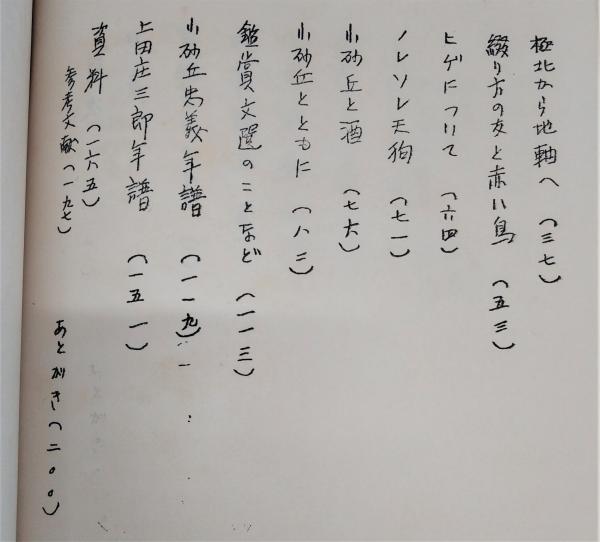 極北から地軸へ (三七)
綴り方の友と赤い鳥 (五三)
ヒゲについて (六四)
ノレソレ天狗 (七一)
小砂丘と酒 (七六)
小砂丘とともに (八二)
鑑賞文選のことなど (一一三)
小砂丘忠義年譜 (一一九)
上田庄三郎年譜 (一五一)
資料 (一六五)
参考文献 (一九七)
あとがき (二〇〇)